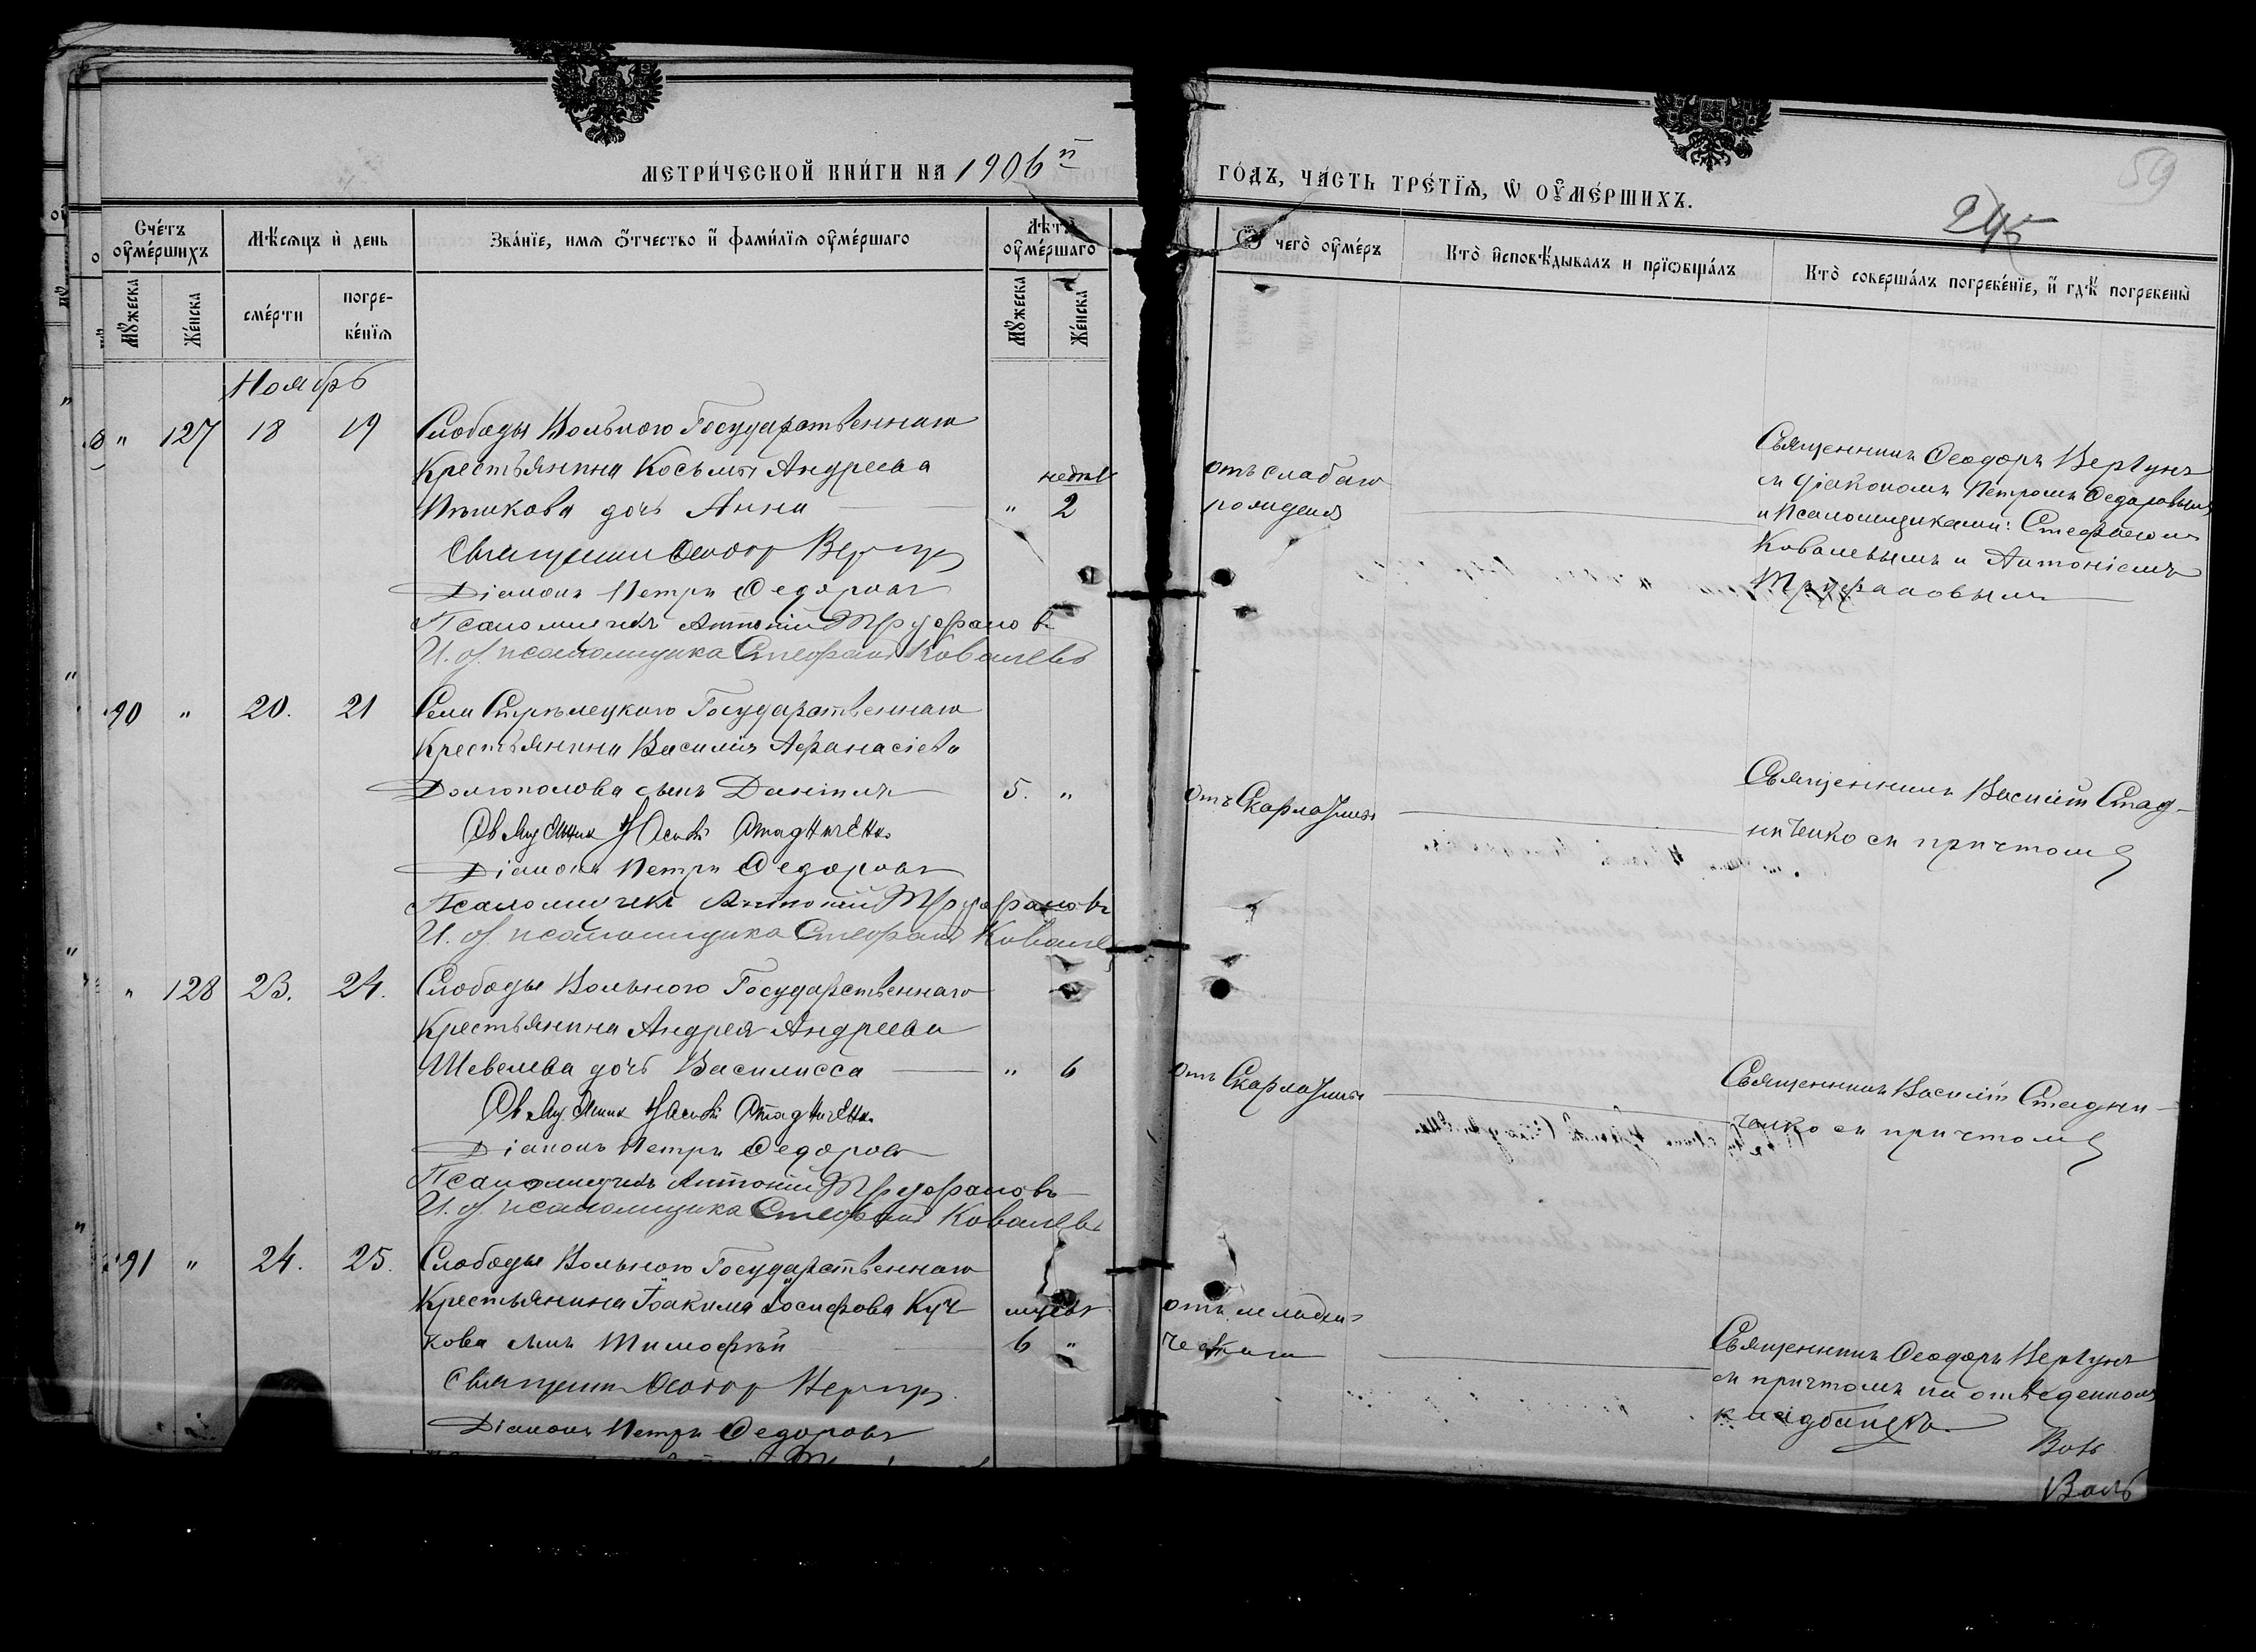 МЕТРИ́ЧЕСКОЙ КНИ́ГИ НА 1906 й
ГО́ДЪ, ЧА́СТЬ ТРЕ́ТІѦ, Ѡ ОУ҆МЕ́РШИХЪ.
59
245
Сче́тъ оу҆ме́ршихъ
Мѣ́сѧцъ и҆ день
Зва́нїе, имѧ ѻ҆́тчество и҆ фами́лїѧ оу҆ме́ршаго
Лѣ́та оу҆ме́ршагѡ
Ѿ чегѡ̀ оу҆ме́ръ
Кто̀ и҆сповѣ́дывалъ и прїѡбща́лъ
Кто̀ соверша́лъ погребе́нїе, и҆ гдѣ̀ погребены̀
Мꙋ́жеска
Же́нска
сме́рти
погребе́нїѧ
Мꙋ́жеска
Же́нска
Ноябрь
" 127 18 19 Слободы Вольного Государственнаго
Крестьянина Косьмы Андреева недѣл
дочь Анна " 2
Священникъ Ѳеодоръ Вергунъ
Діаконъ Петръ Ѳедоровъ
Псаломщикъ Антоній Труфановъ
И. об. псаломщика Стефанъ Ковалевъ
отъ слабаго
рожденія
Священникъ Ѳеодоръ Вергунъ
съ Діакономъ Петромъ Ѳедоровымъ
и Псаломщиками: Стефаномъ
Ковалевымъ и Антоніемъ
Труфановымъ
90 " 20. 21 Села Стрѣлецкого Государственнаго
Крестьянина Василія Афанасіева
Долгополова сынъ Даніилъ 5. "
Священник Василій Стадниченко
Діаконъ Петръ Ѳедоровъ
Псаломщикъ Антоній Труфановъ
И. об. псаломщика Стефанъ Ковалев
отъ Скарлатины
Священникъ Василій Стад-
ниченко съ причтомъ
" 128 23. 24. Слободы Вольного Государственнаго
Крестьянина Андрея Андреева
Шевелева дочь Василисса " 6
Священник Василій Стадниченко
Діаконъ Петръ Ѳедоровъ
Псаломщикъ Антоній Труфановъ
И. об. псаломщика Стефанъ Ковалевъ
отъ Скарлатины
Священникъ Василій Стадни-
ченко съ причтомъ
91 " 24. 25. Слободы Вольного Государственнаго
Крестьянина Іоакима Іосифова Куч-
кова сынъ Тимофѣй 6 "
Священникъ Ѳеодоръ Вергунъ
Діаконъ Петръ Ѳедоровъ
отъ младен-
ческаго
Священникъ Ѳеодоръ Вергунъ
съ причтомъ на отведенномъ
кладбищѣ